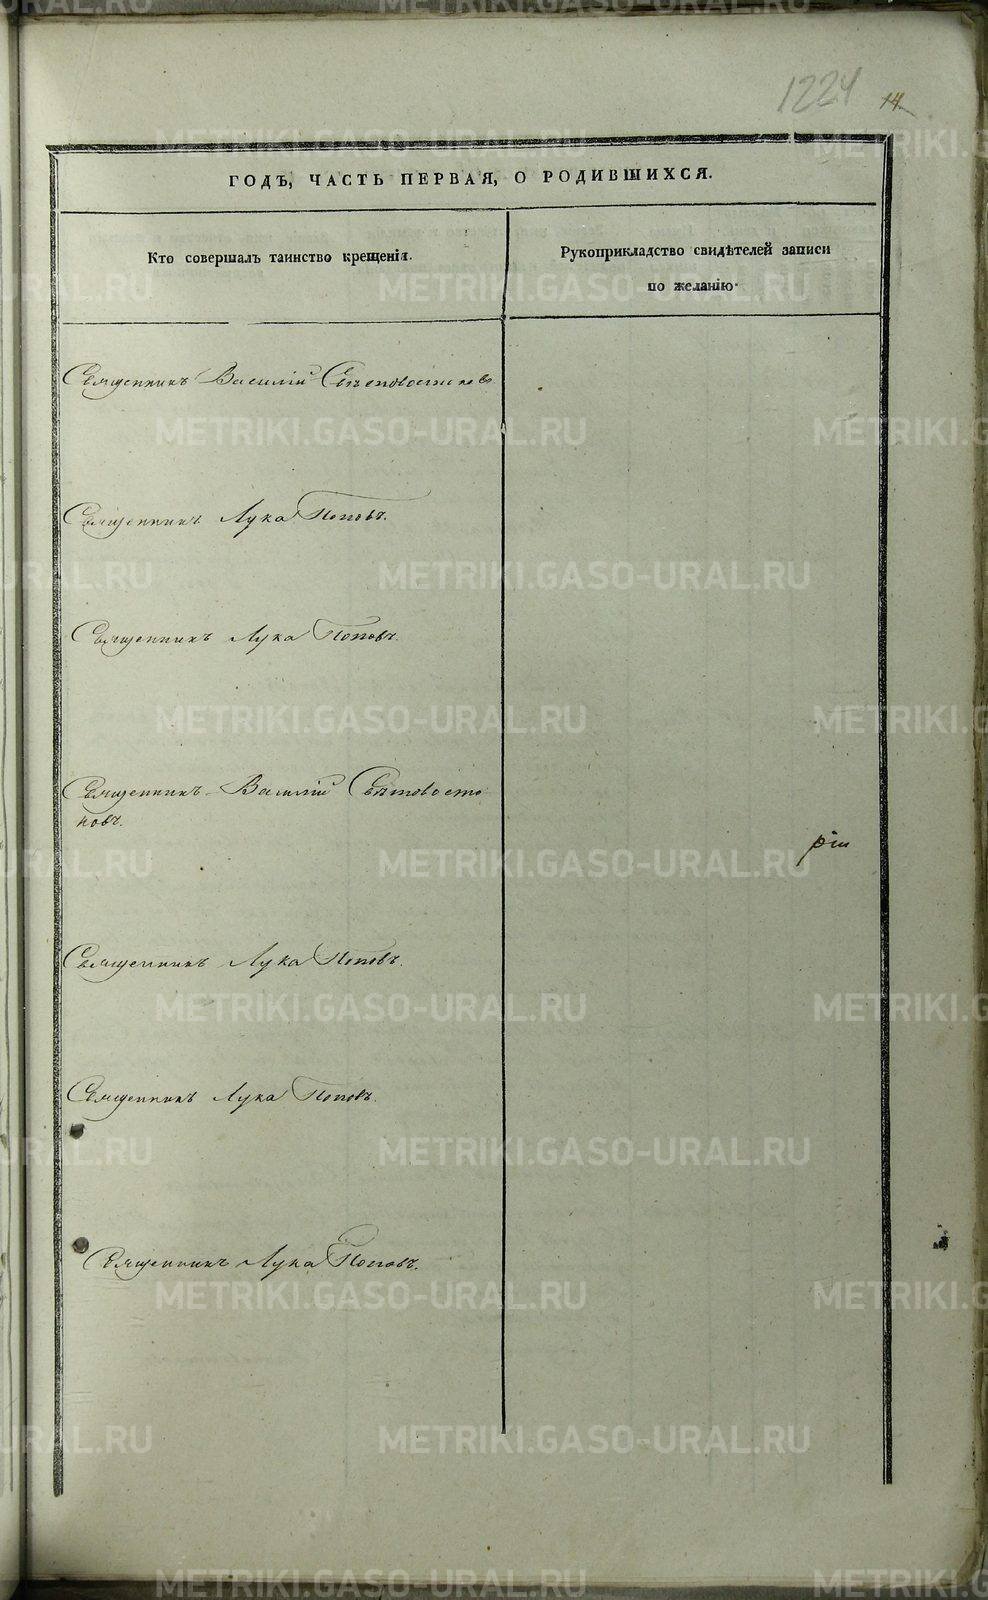 1224 14.
ГОДЪ, ЧАСТЬ ПЕРВАЯ, О РОДИВШИХСЯ.
Кто совершалъ таинство крещенія.
Рукоприкладство свидѣтелей записи
по желанію.
Священникъ Василій
Священникъ Лука Поповъ.
Священникъ Лука Поповъ.
Священникъ Василій
новъ.
рiи
Священникъ Лука Поповъ.
Священникъ Лука Поповъ.
Священникъ Лука Поповъ.
METRIKI.GASO-URAL.RU